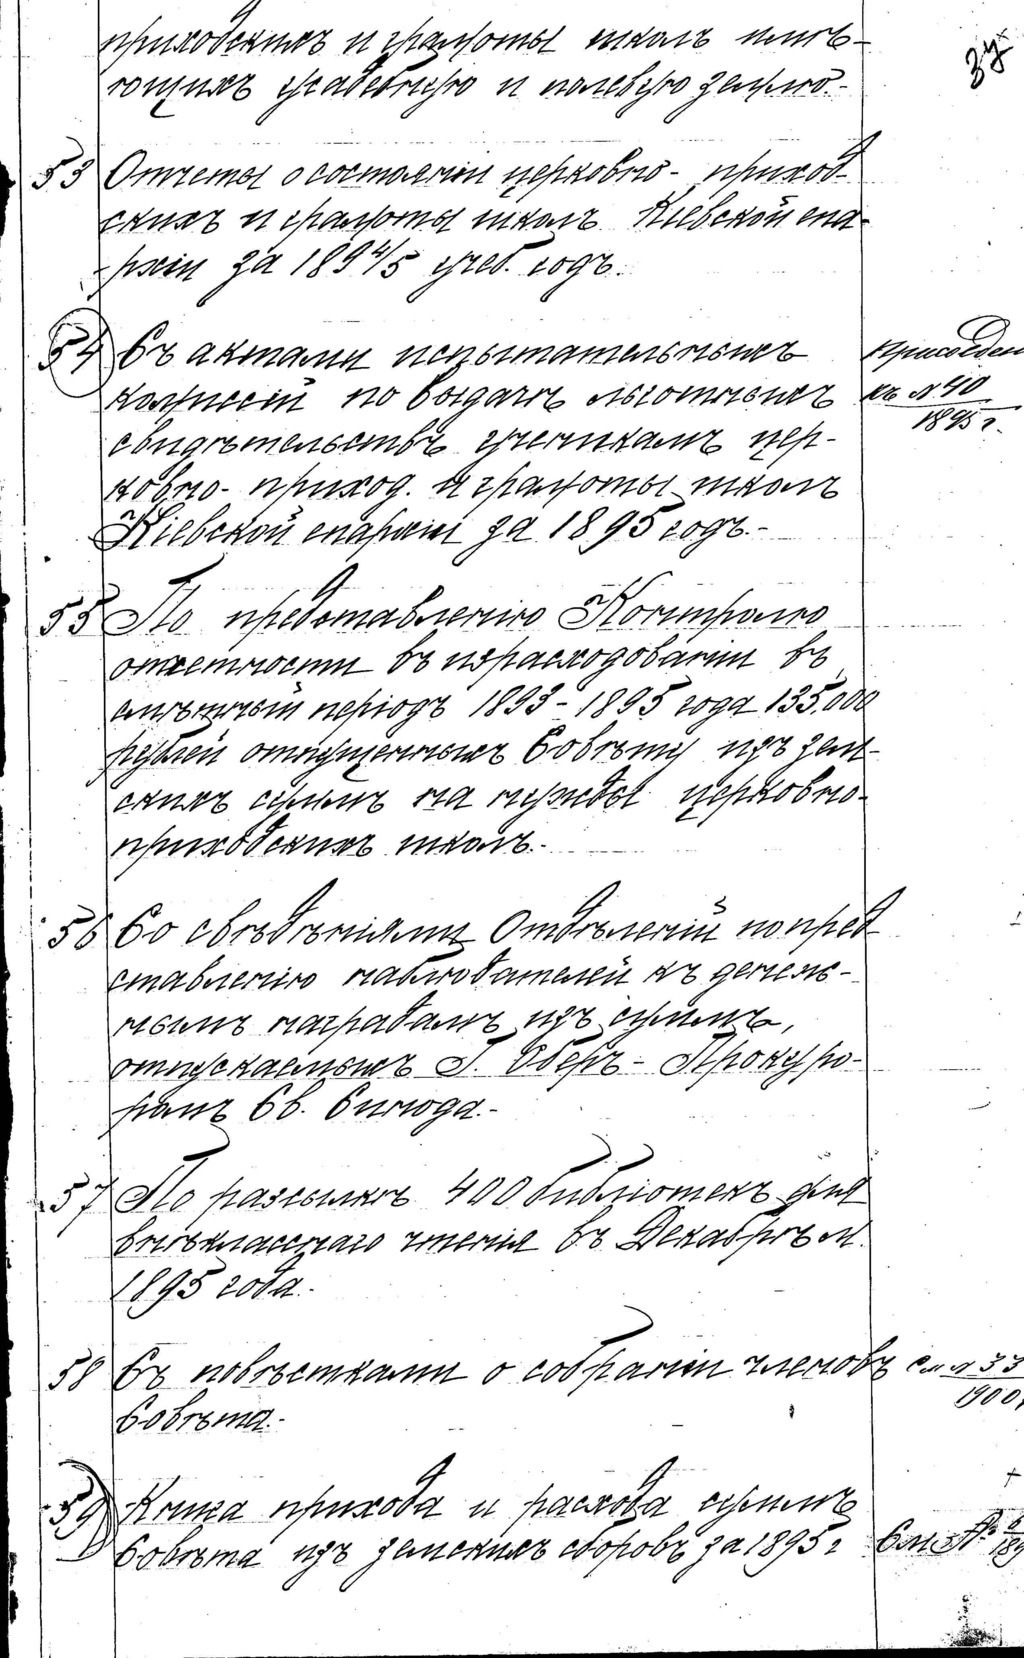 приходскихъ и грамоты школъ имѣ-
ющихъ усадебную и полевую землю.-
53 Отчеты о состояніи церковно- приход-
скихъ и грамоты школъ Кіевской епа-
рхіи за 1894/5 учеб. годъ.
54 Съ актами испытательныхъ
коммиссій по выдачѣ льготныхъ
свидѣтельствъ ученикамъ цер-
ковно- приход. и грамоты школъ
Кіевской епархіи за 1895 годъ.-
Присоедин
къ № 40
1895 г.
55 По представленію Контролю
отчетности въ израсходованіи въ
смѣтный періодъ 1893-1895 года 135.000
рублей отпущенныхъ Совѣту изъ зем-
скихъ суммъ на нужды церковно-
приходскихъ школъ.-
56 Со свѣдѣніями Отдѣленій по пред-
ставленію наблюдателей къ денеж-
нымъ наградамъ изъ суммъ,
отпускаемыхъ Г. Оберъ- Прокуро-
ромъ Св. Синода.-
57 По разсылкѣ 400 библіотекъ для
внѣкласснаго чтенія въ Декабрѣ м.
1895 года.-
58 Съ повѣстками о собраніи членовъ
Совѣта.-
См № 33
1900
59 Книга прихода и расхода суммъ
Совѣта изъ земскихъ сборовъ за 1895 г
См №